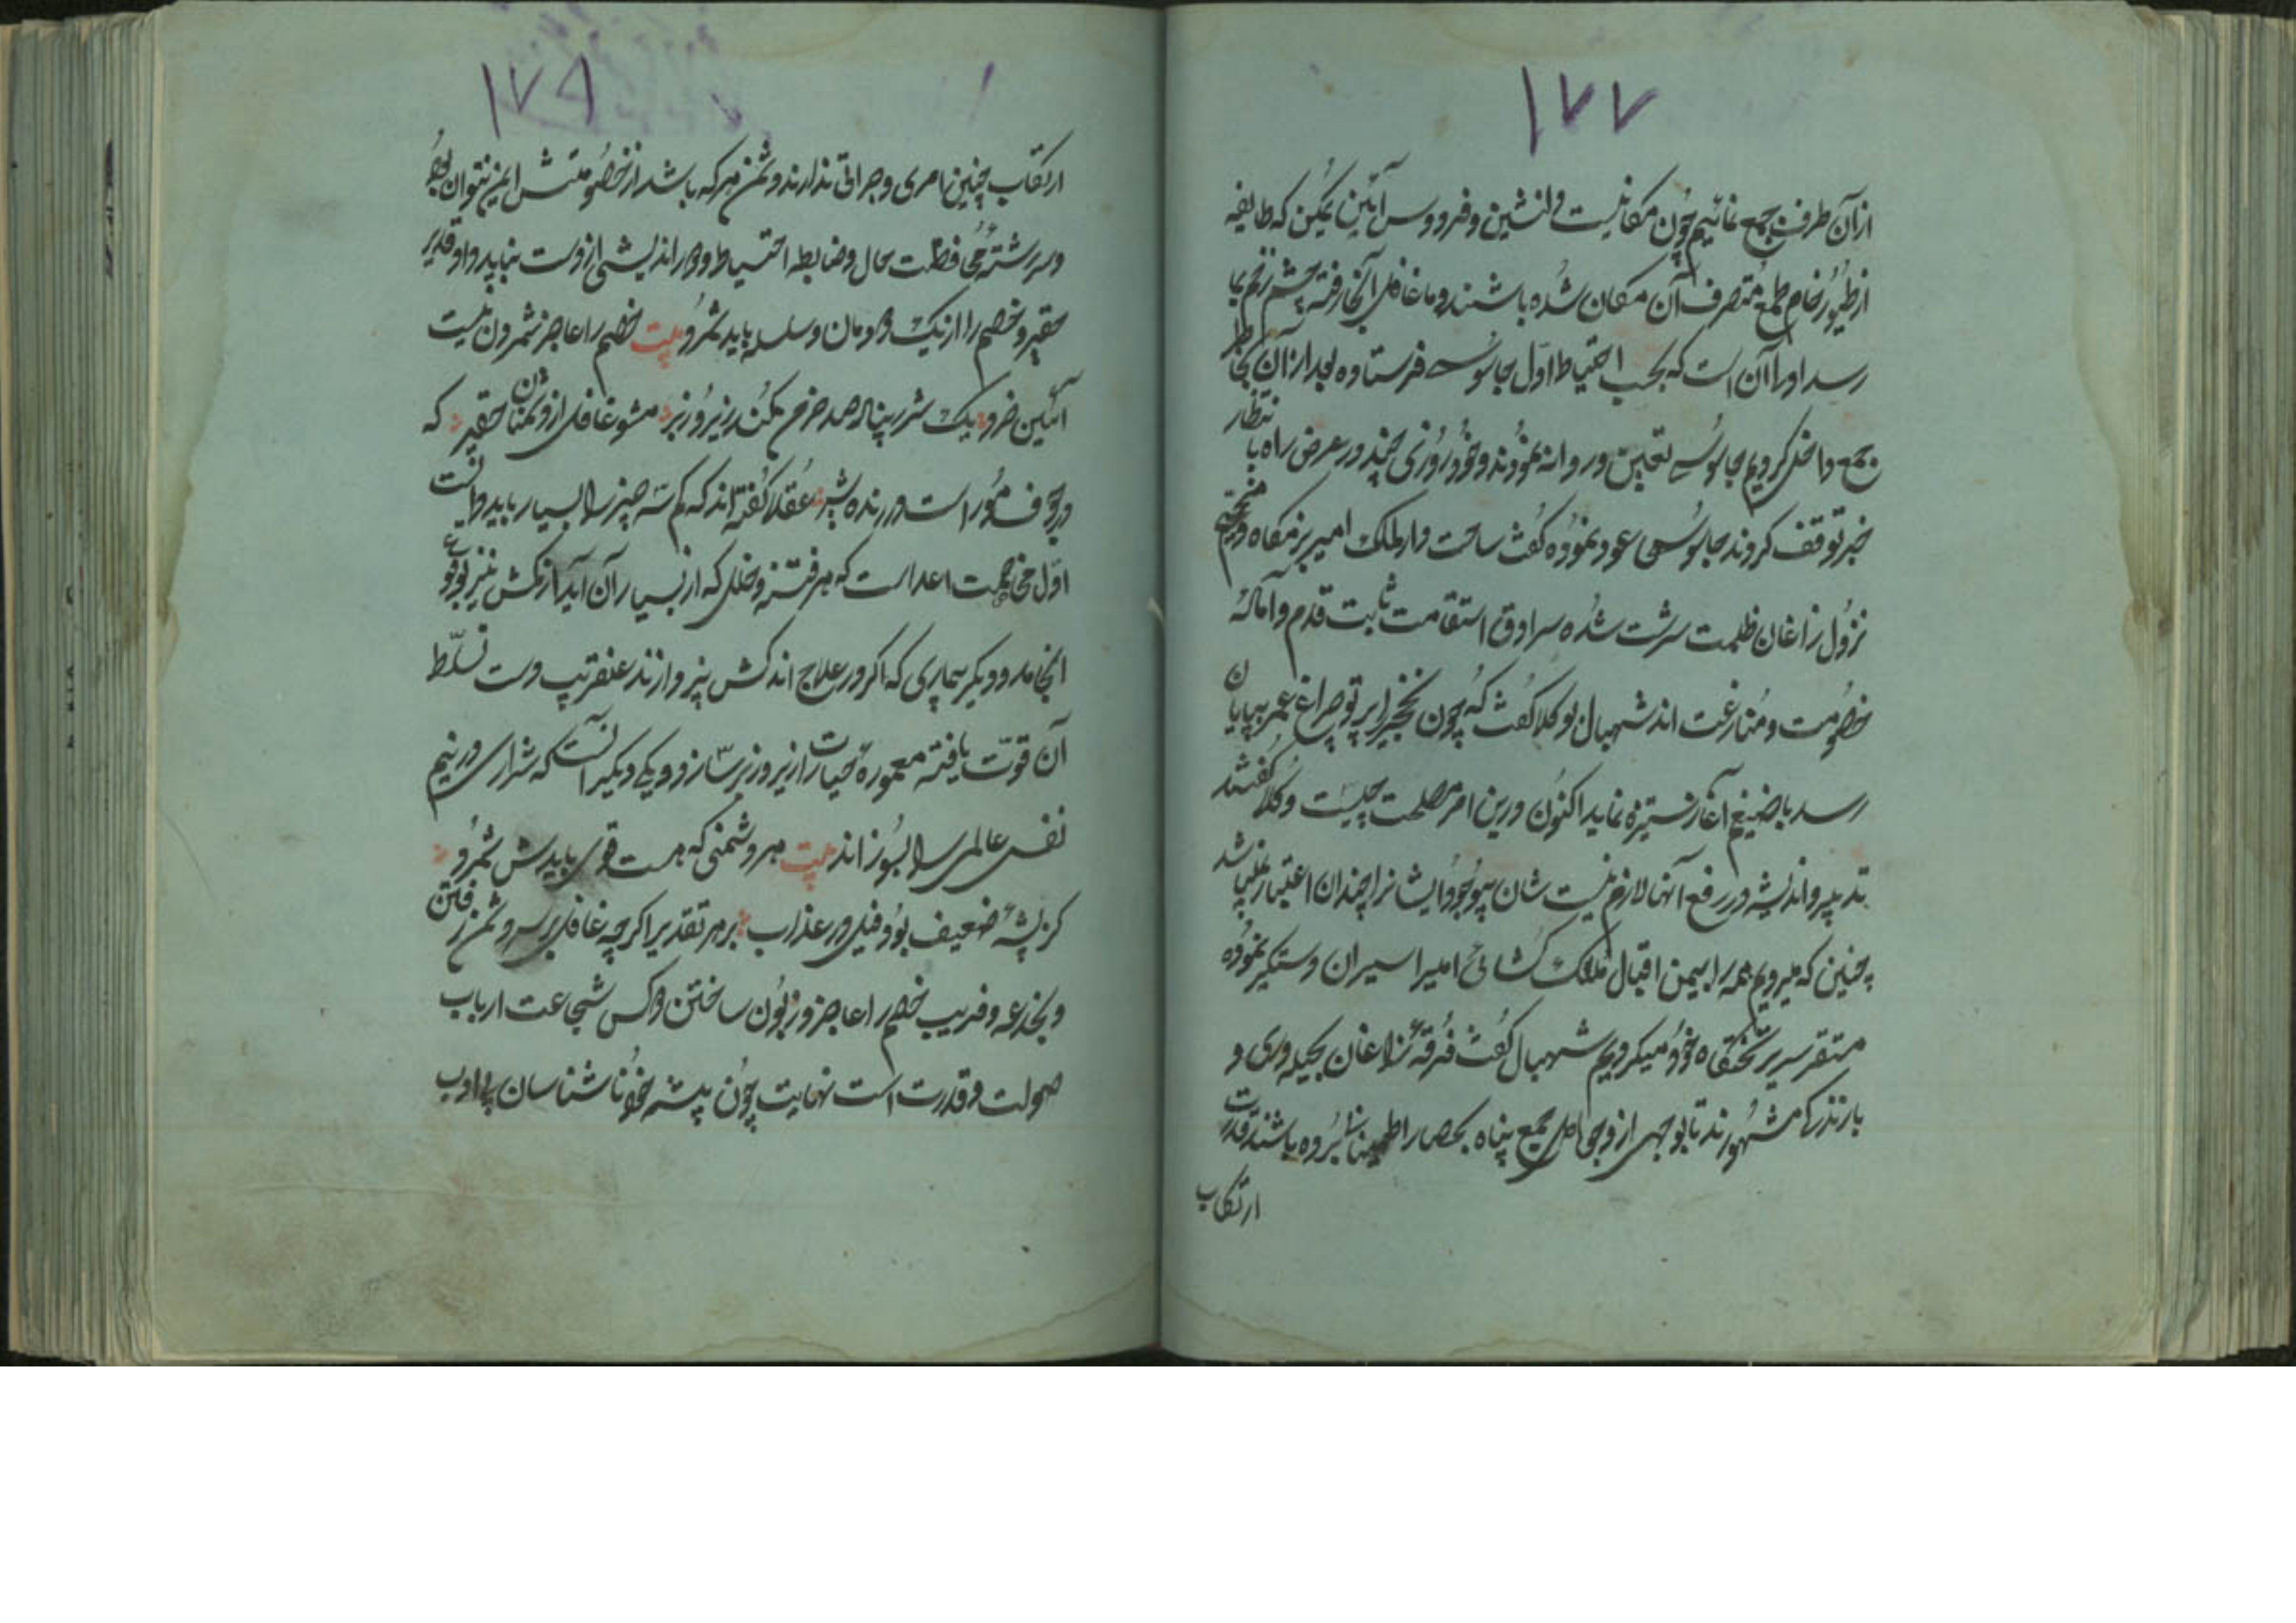 ١٧٧
ازان طرف جمع نمائیم چون مکانیست دلنشین و فردوس آئین یمکن که طایفه
از طیور خام طمع متصرف آن مکان شده باشند و ما غافل آنجا رفته چشم زخم بما
رسد اورا آن است که بحسب احتیاط اول جاسوسے فرستاده بعد ازان بخاطر
جمع داخل کردیم جاسوسے تعین و روانه نمودند و خود روزی چند در عرض راه با نتظار
خبر توقف کردند جاسوسی عود نموده گفت ساحت دارلملک امیر بزمگاه و مخیم
نزول زاغان ظلمت سرشت شده سرادق استقامت ثابت قدم و آماده
خصومت و منازعت اند شهبال بوکلا گفت که چون نخجیر را پرتو چراغ عمر بپایان
رسد باضیغم آغاز ستیزه نماید اکنون درین امر مصلحت چیست وکلا گفتند
تدبیر و اندیشه در رفع آنها لازم نیست شان بیوجود ایشانرا چندان اعتبار نمیباشد
چنین که میرویم همه را بیمن اقبال ملک کشائی امیر اسیران و ستکیر نموده
مستقر سریر تختگاه خود میکردیم شهبال گفت فرقه زاغان بحیله وری و
بازندگی مشهورند تا بوجهی از وجوه اصل جمع پناه بحصار اطمینان نبرده باشند قدرت
ارتکاب
١٧٨
ارتکاب چنین امری و جراتی ندارند و دشمن هر که باشد از خصومتش ایمن نتوان بود
و سررشته محافظت حال و ضابطه احتیاط و دور اندیشی از دست نباید داد قدیر
حقیر و خصم را از نیک دودمان و سلسله باید شمرد بیت خصم را عاجز شمردن نیست
آئین خرد یک شرر پنبالا صد خرمن کند زیر و زبر مشو غافل از دشمنان حقیر که
در جوف مور است درنده شیر عقلا گفته اند که کم سه چیز را بسیار باید دانست
اول مخاصمت اعدا است که هر فتنه و خلل که از بسیار آن آید از کمش نیز بوقوع
انجامد و دیگر بیماری که اگر در علاج اندکش نپردازند عنقریب دست تسلط
آن قوت یافته معموره حیات را زیر و زبر سازد و دیکی دیکر آنست که شراری در نیم
نفس عالمی را بسوزاند بیت هر دشمنی که هست قوی بایدش شمرد
کز پشه ضعیف بود فیل در عذاب بر هر تقدیر اگرچه غافل بر سر دشمن رفتن
و بخدعه و فریب خصم را عاجز و زبون ساختن و کس شجاعت ارباب
صولت و قدرت است نهایت چون پیشه خدا نا شناسان بے ادب